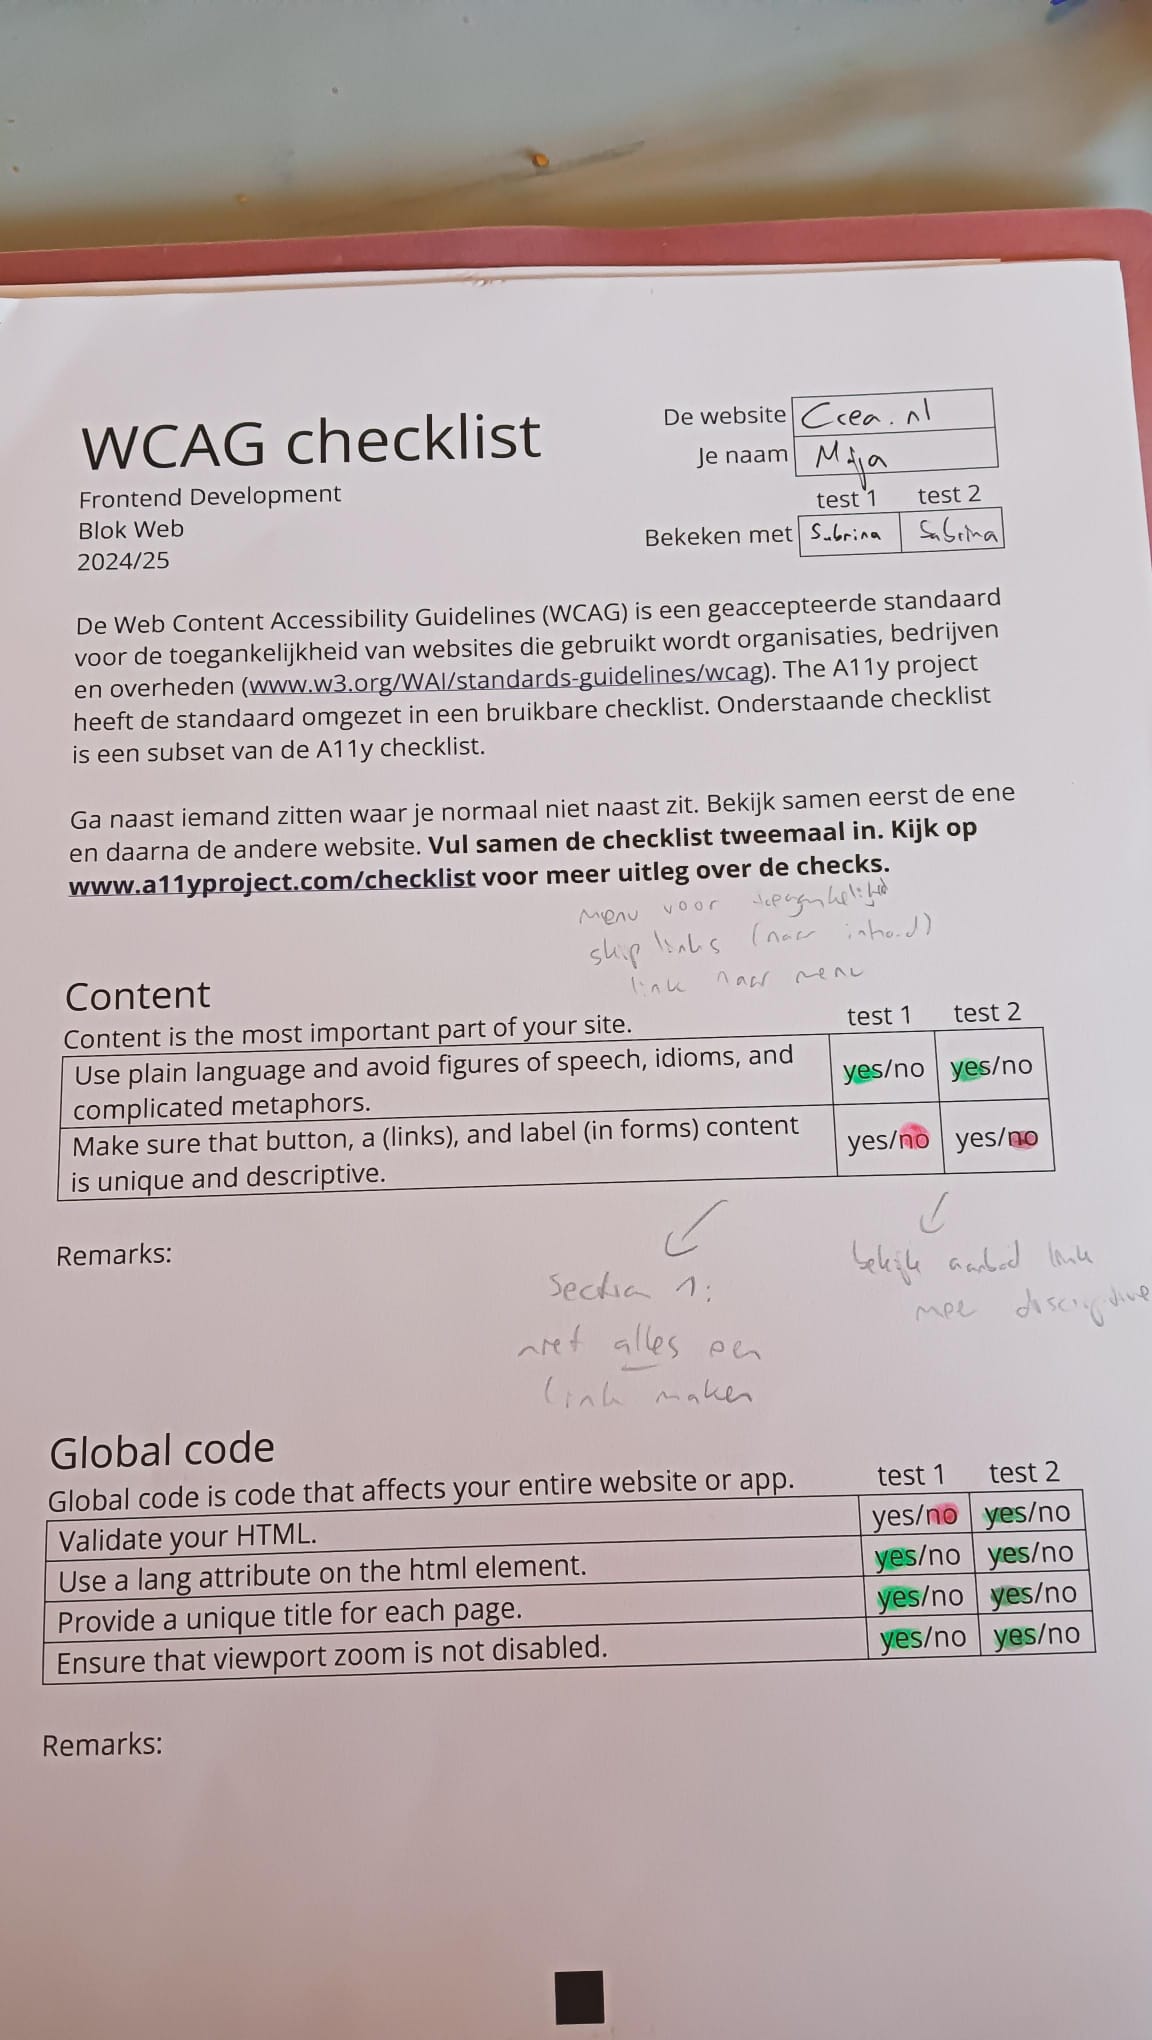 WCAG checklist
Frontend Development
Blok Web
2024/25
De website Crea.nl
Je naam Mija
test 1 test 2
Bekeken met Sabrina Sabrina
De Web Content Accessibility Guidelines (WCAG) is een geaccepteerde standaard
voor de toegankelijkheid van websites die gebruikt wordt organisaties, bedrijven
en overheden (www.w3.org/WAI/standards-guidelines/wcag). The A11y project
heeft de standaard omgezet in een bruikbare checklist. Onderstaande checklist
is een subset van de A11y checklist.
Ga naast iemand zitten waar je normaal niet naast zit. Bekijk samen eerst de ene
en daarna de andere website. Vul samen de checklist tweemaal in. Kijk op
www.a11yproject.com/checklist voor meer uitleg over de checks.
Menu voor toegankelijkheid
skip links (naar inhoud)
link naar menu
Content
Content is the most important part of your site. test 1 test 2
Use plain language and avoid figures of speech, idioms, and
complicated metaphors. yes/no yes/no
Make sure that button, a (links), and label (in forms) content
is unique and descriptive. yes/no yes/no
Remarks:
Section 1:
niet alles een
link maken
bekijk aanbod link
mee discriptive
Global code
Global code is code that affects your entire website or app. test 1 test 2
Validate your HTML. yes/no yes/no
Use a lang attribute on the html element. yes/no yes/no
Provide a unique title for each page. yes/no yes/no
Ensure that viewport zoom is not disabled. yes/no yes/no
Remarks: